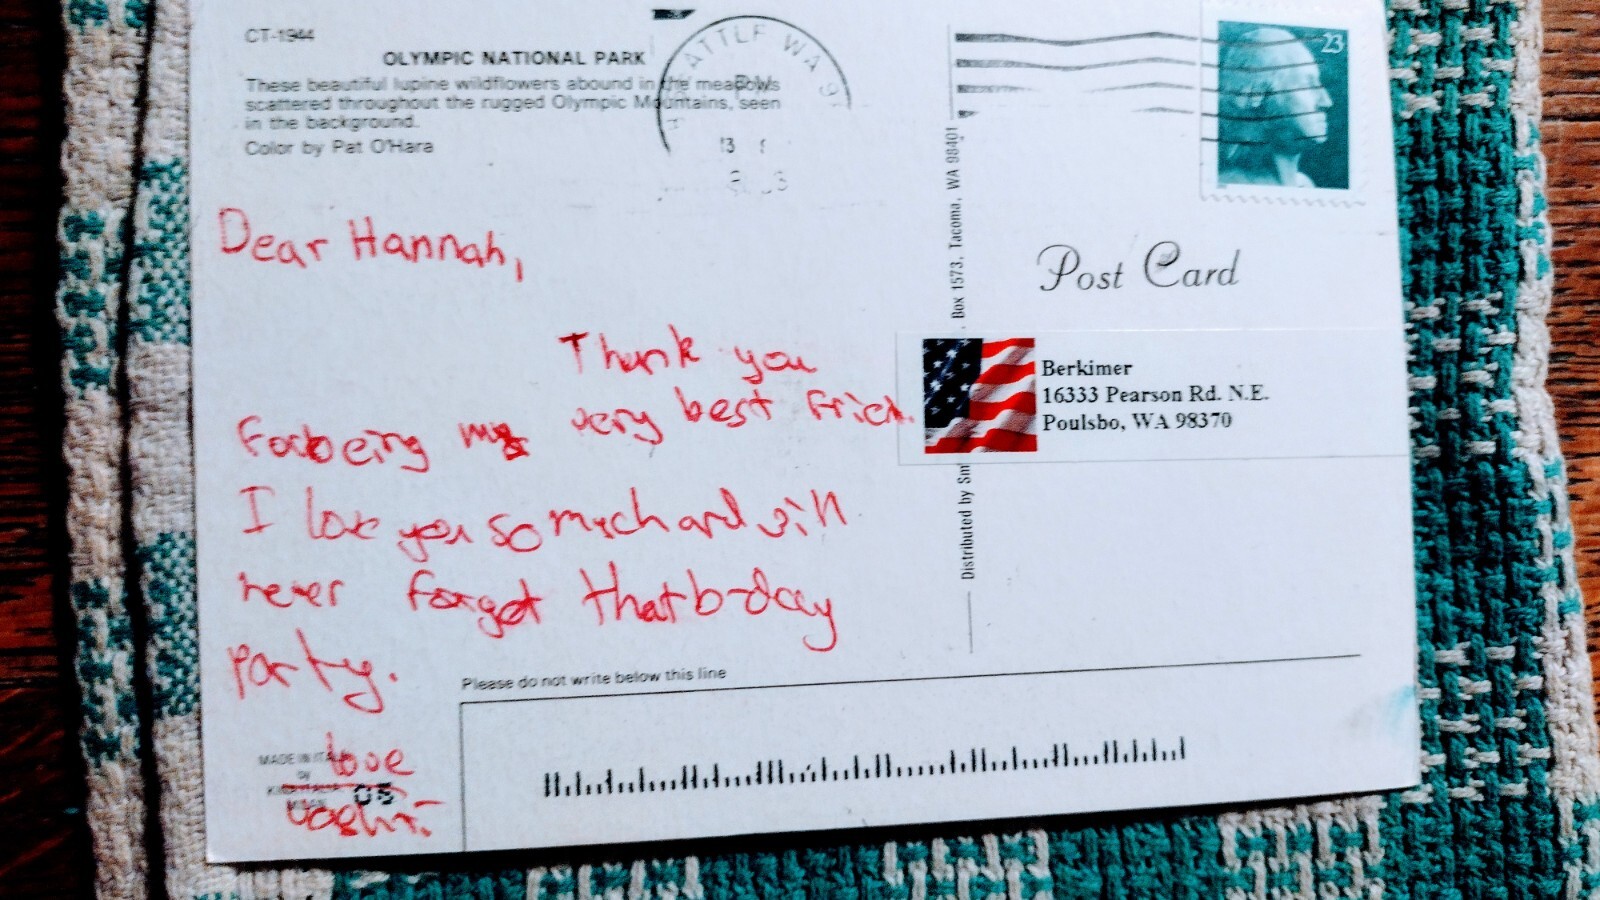 CT-1944
OLYMPIC NATIONAL PARK
These beautiful lupine wildflowers abound in the meadows
scattered throughout the rugged Olympic Mountains, seen
in the background.
Color by Pat O'Hara
ATTLE WA 9
PM
13
23
Dear Hannah,
Thank you
for being my very best frien.
I love you so much and will
never forget that b-day
party.
love
Post Card
Berkimer
16333 Pearson Rd. N.E.
Poulsbo, WA 98370
Distributed by Sm
. Box 1573, Tacoma, WA 98401
Please do not write below this line
MADE IN ITA
by
05